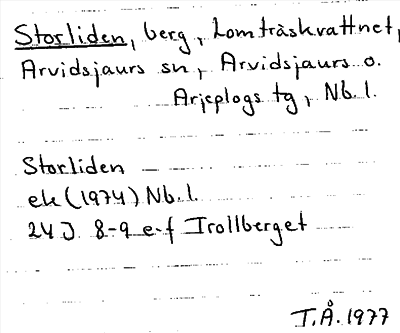 Storliden, berg, Lomträskvattnet,
Arvidsjaurs sn, Arvidsjaurs o.
Arjeplogs tg, Nb. l.
Storliden
ek (1974) Nb. l.
24 J 8-9 e-f Trollberget
T.Å. 1977